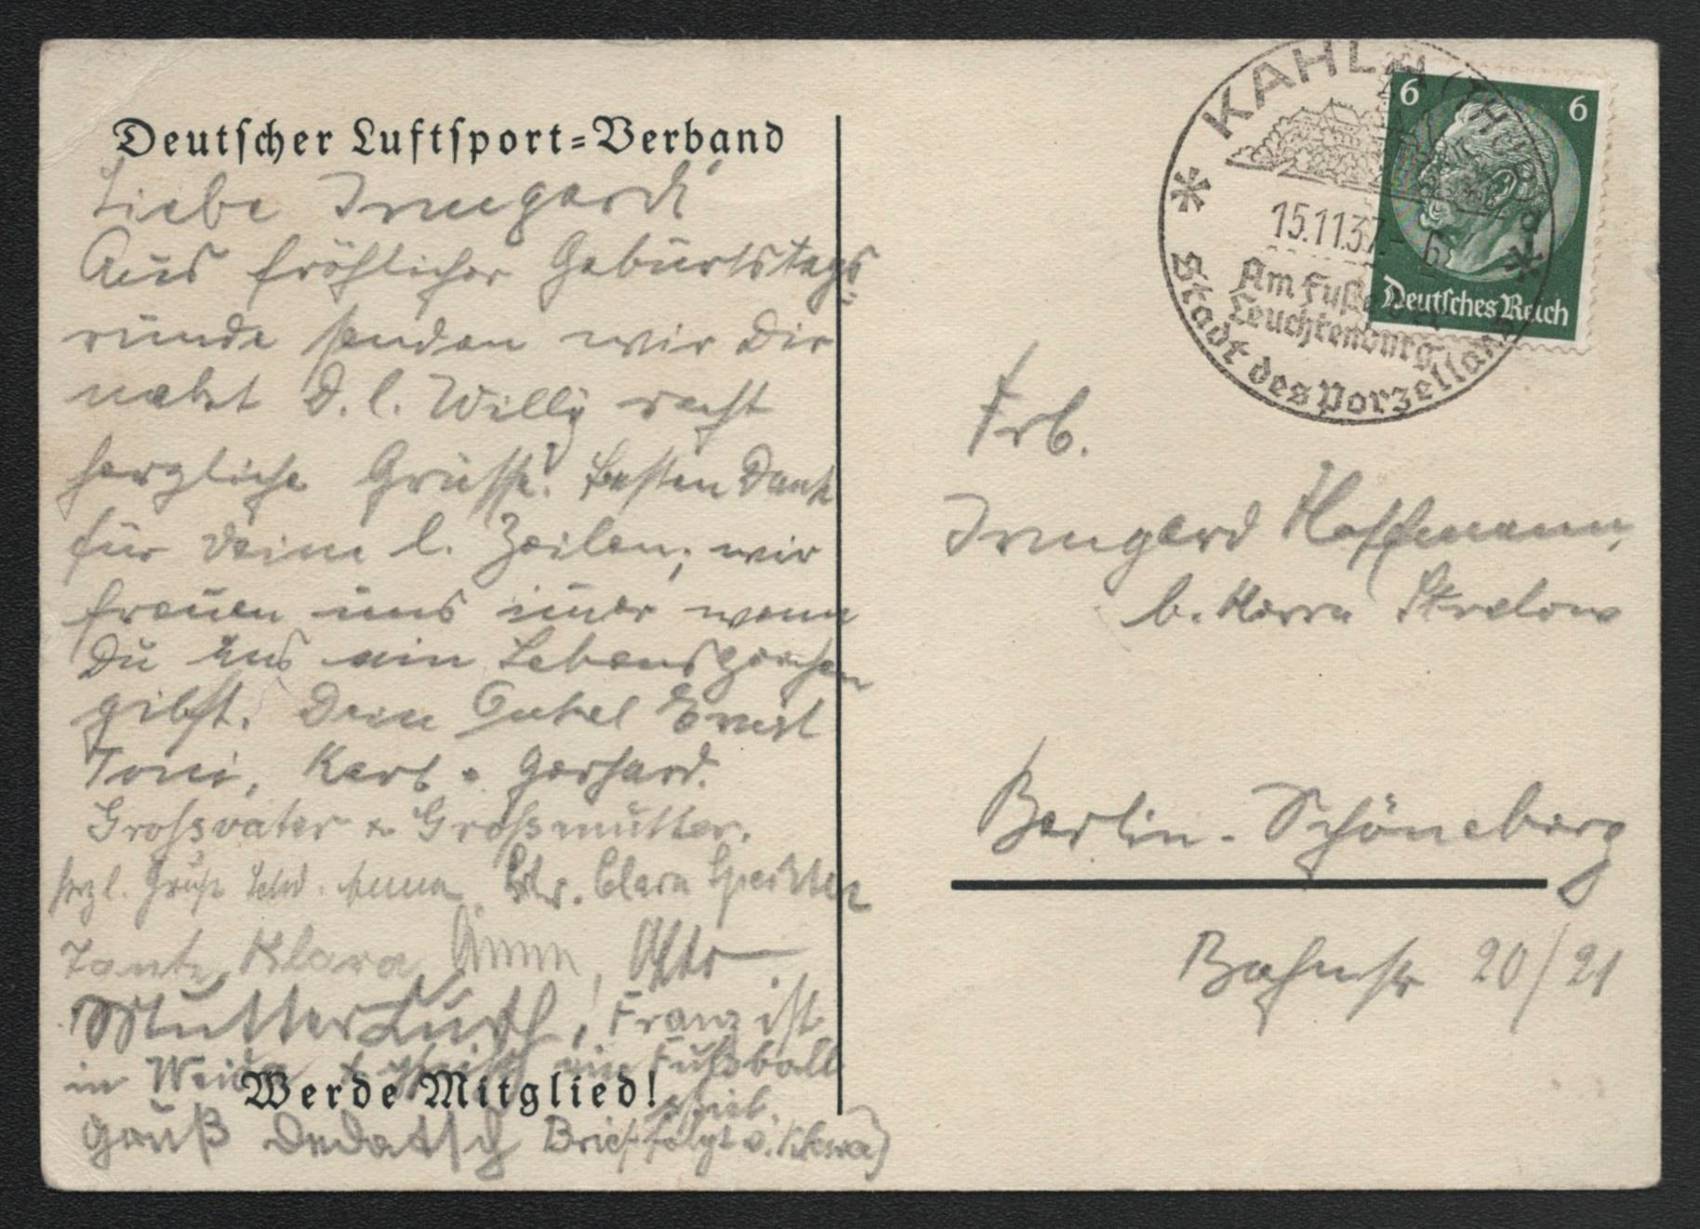 Deutscher Luftsport-Verband
Liebe Irmgard!
Aus fröhlicher Geburtstags-
runde senden wir Dir
nebst D. l. Willy recht
herzliche Grüsse! besten Dank
für Deine l. Zeilen, wir
freuen uns imer wenn
Du uns ein Lebenszeichen
gibst. Dein Onkel Ernst
Toni, Karl u Gerhard.
Grossvater u Grossmutter.
herzl. Gruß Anna Clara
Tante Klara Otto
Mutter Franz ist
in ein Fußball
Werde Mitglied!
spiel.
Gruß Brief folgt v. Klara)
KAHLA (THÜR)
15.11.37.-6
Am Fuße der
Leuchtenburg
Stadt des Porzellans
6 6
Deutsches Reich
Frl.
Irmgard Hoffmann,
b. Herrn Strelow
Berlin-Schöneberg
Bahnstr 20/21